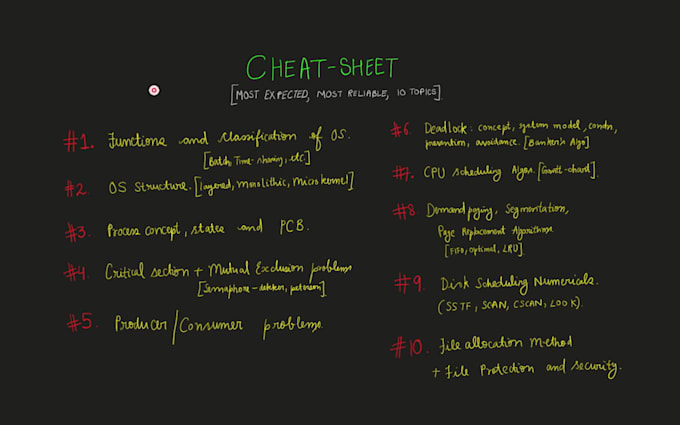 CHEAT-SHEET
[MOST EXPECTED, MOST RELIABLE, 10 TOPICS].
#1. Functions and Classification of OS.
[Batch, Time-sharing, etc]
#2. OS Structure. [layered, Monolithic, Microkernel]
#3. Process concept, states and PCB.
#4. Critical section + Mutual Exclusion problems
[Semaphore - dekker, peterson].
#5. Producer/Consumer problems.
#6. Deadlock: concept, system model, condn,
prevention, avoidance. [Banker's Algo]
#7. CPU scheduling Algos. [Gantt-chart].
#8. Demand paging, Segmentation,
Page Replacement Algorithms
[FIFO, optimal, LRU].
#9. Disk Scheduling Numericals.
(SSTF, SCAN, CSCAN, LOOK).
#10. File allocation Method
+ File Protection and security.